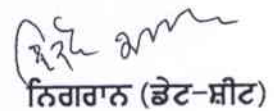 ਨਿਗਰਾਨ (ਡੇਟ-ਸ਼ੀਟ)